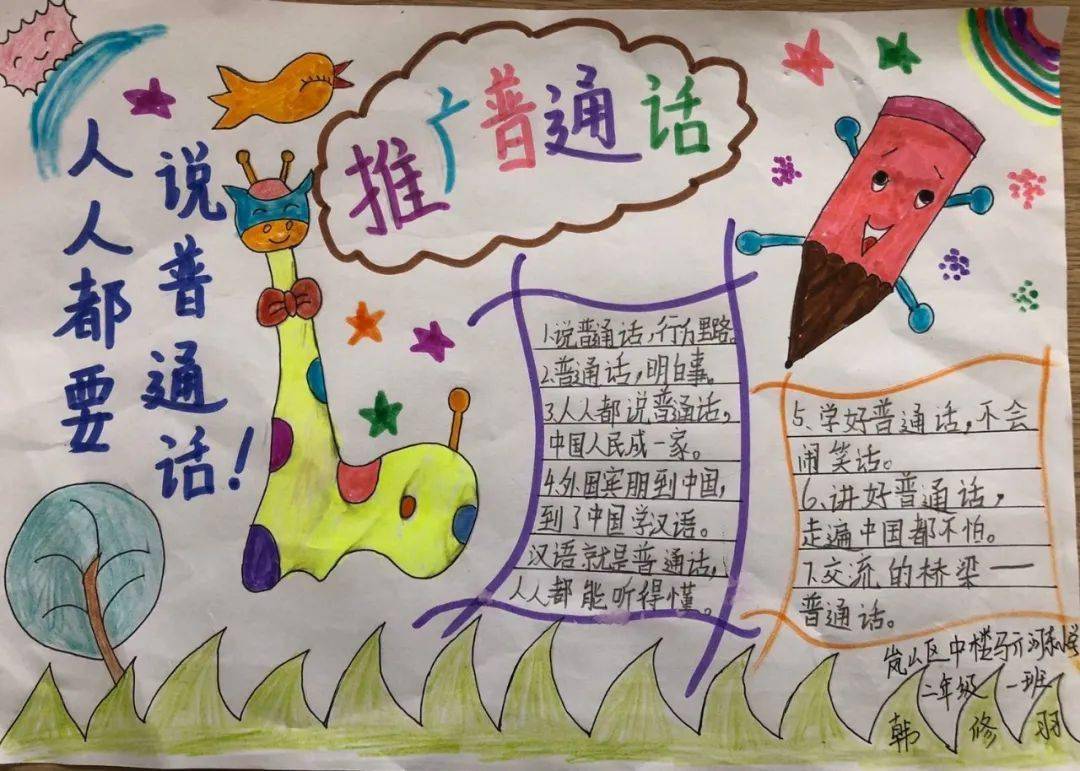 推广普通话
人人都要
说普通话!
1.说普通话,行万里路。
2.普通话,明白事。
3.人人都说普通话,
中国人民成一家。
4.外国宾朋到中国,
到了中国学汉语。
汉语就是普通话,
人人都能听得懂。
5.学好普通话,不会
闹笑话。
6.讲好普通话,
走遍中国都不怕。
7.交流的桥梁——
普通话。
岚山区中楼马亓河小学
二年级 一班
韩修羽